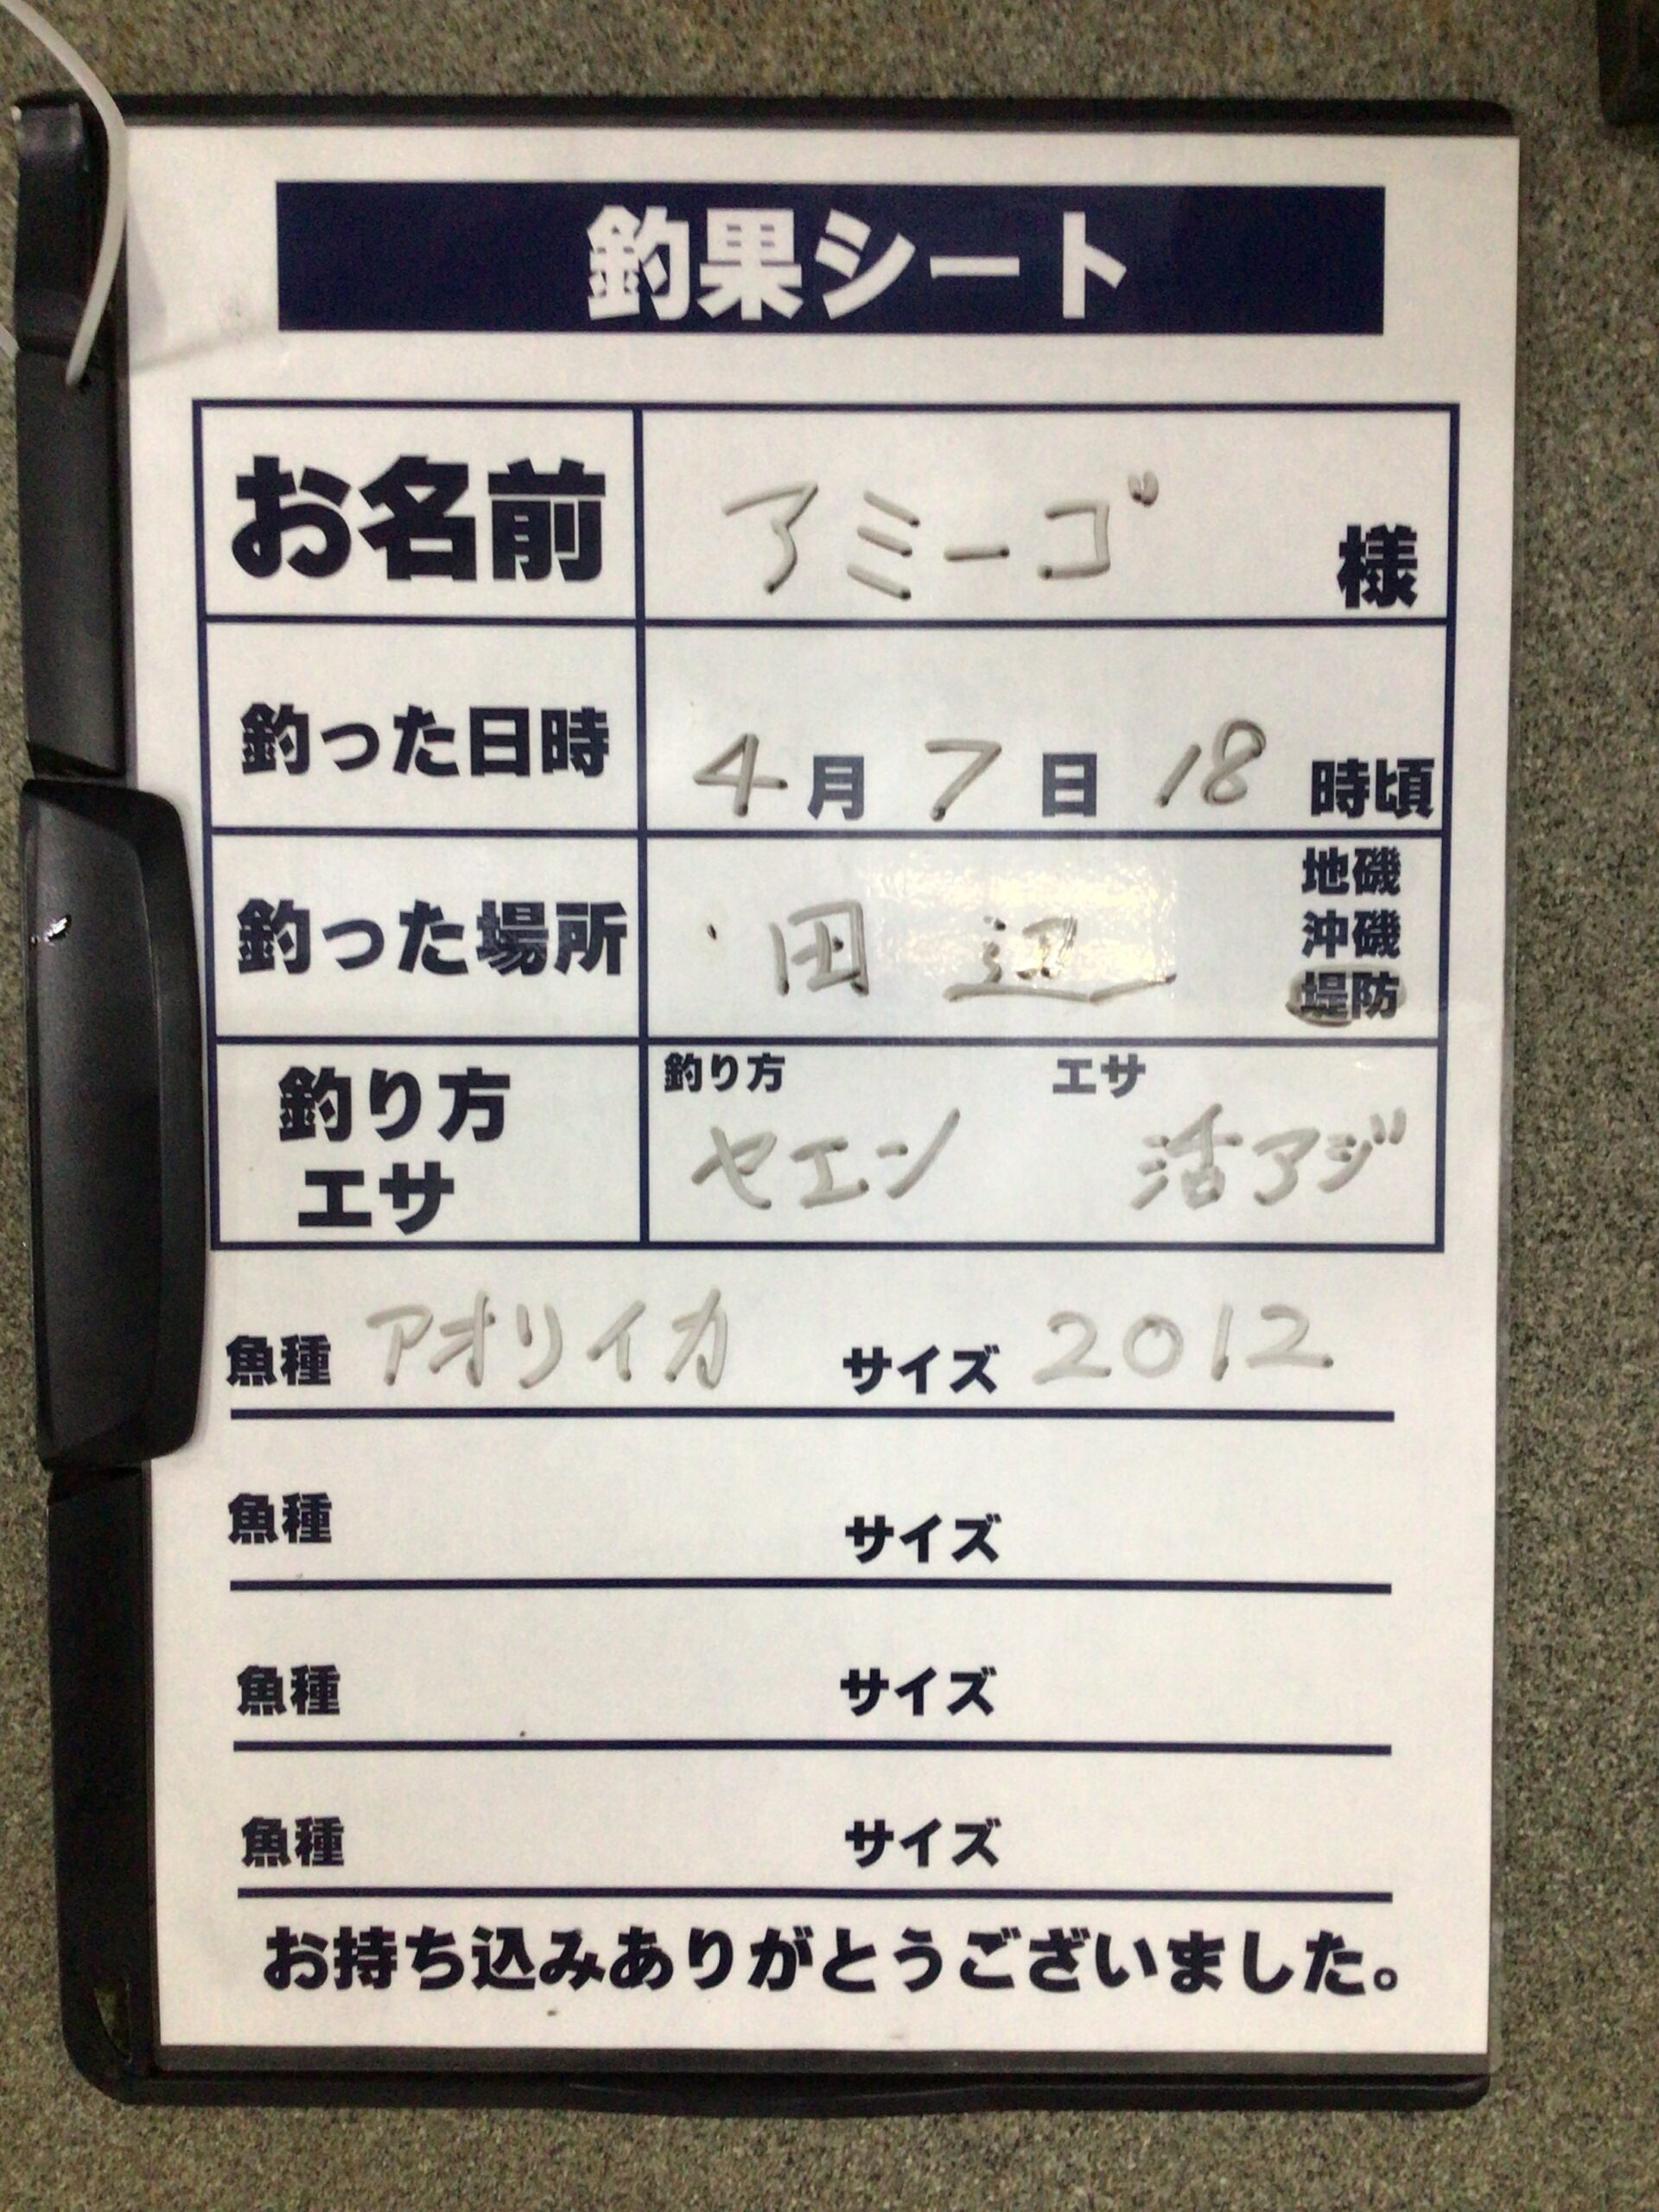 釣果シート
お名前 アミーゴ 様
釣った日時 4月7日18時頃
釣った場所 田辺 地磯
沖磯
堤防
釣り方
エサ
釣り方 エサ
ヤエン 活アジ
魚種 アオリイカ サイズ 2012
魚種 サイズ
魚種 サイズ
魚種 サイズ
お持ち込みありがとうございました。